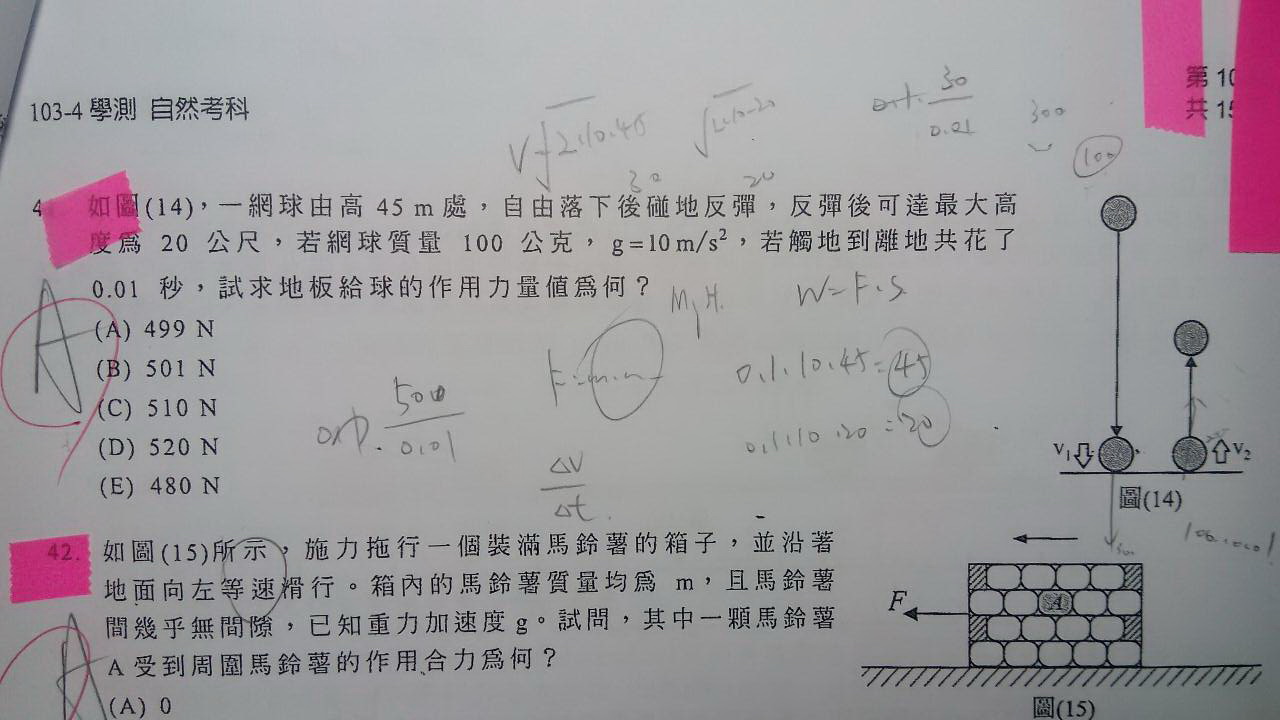 103-4 學測 自然考科
第 10
共 15
V √2.10.45
√2.10.20
30
0.01
300
100
30
20
4
如圖(14)，一網球由高 45 m 處，自由落下後碰地反彈，反彈後可達最大高
度為 20 公尺，若網球質量 100 公克，g=10 m/s²，若觸地到離地共花了
0.01 秒，試求地板給球的作用力量值為何？
(A) 499 N
(B) 501 N
(C) 510 N
(D) 520 N
(E) 480 N
A
W=F.S
0.1.10.45=45
0.1.10.20=20
500
0.01
ΔV
Δt
V₁
V₂
圖(14)
42.
如圖(15)所示，施力拖行一個裝滿馬鈴薯的箱子，並沿著
地面向左等速滑行。箱內的馬鈴薯質量均為 m，且馬鈴薯
間幾乎無間隙，已知重力加速度 g。試問，其中一顆馬鈴薯
A 受到周圍馬鈴薯的作用合力為何？
(A) 0
A
F
A
圖(15)